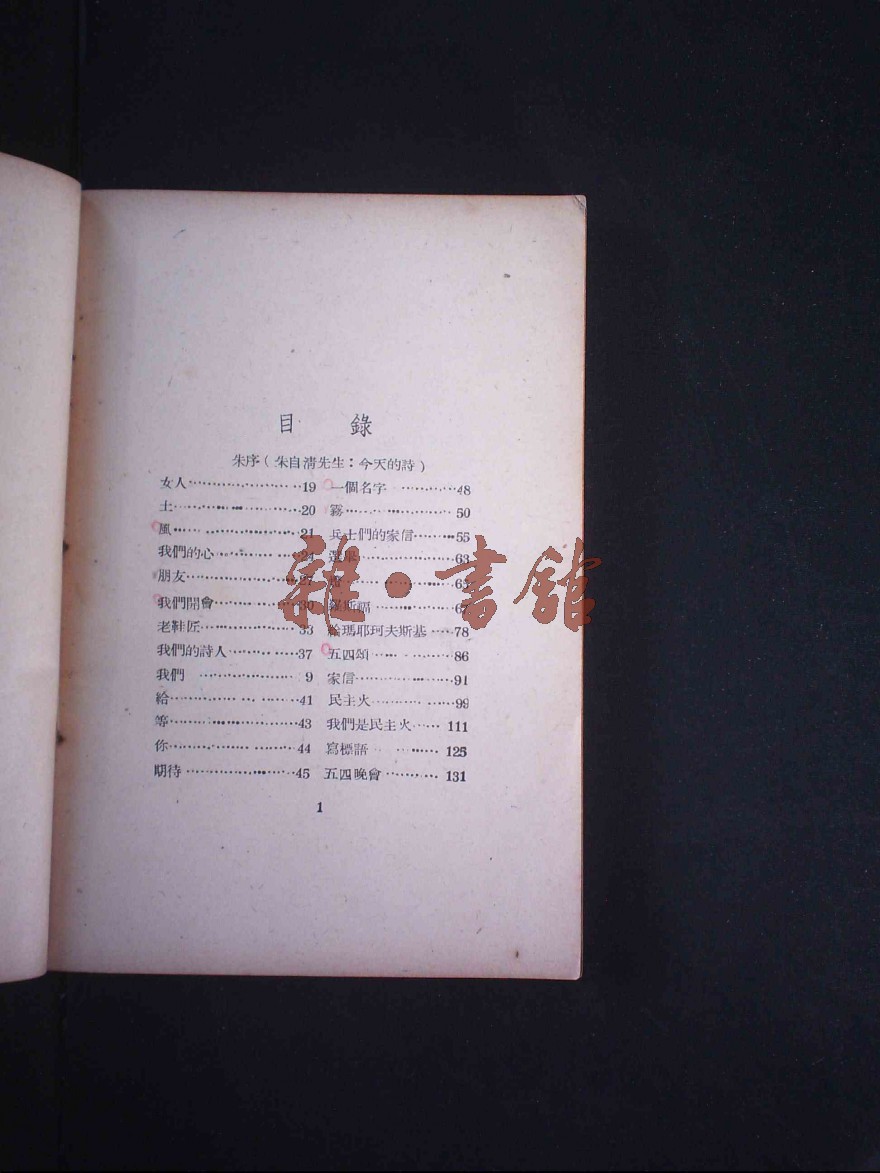 目 錄
朱序（朱自清先生：今天的詩）
女人……………………19
土……………………20
風……………………21
我們的心……………24
朋友……………………27
我們開會……………30
老鞋匠………………33
我們的詩人…………37
我們 ………………9
給……………………41
等……………………43
你……………………44
期待…………………45
一個名字 …………48
霧……………………50
兵士們的家信………55
選舉…………………63
羅斯福………………67
給瑪耶珂夫斯基……78
五四頌………………86
家信…………………91
民主火………………99
我們是民主火……111
寫標語……………125
五四晚會…………131
1
雜·書館